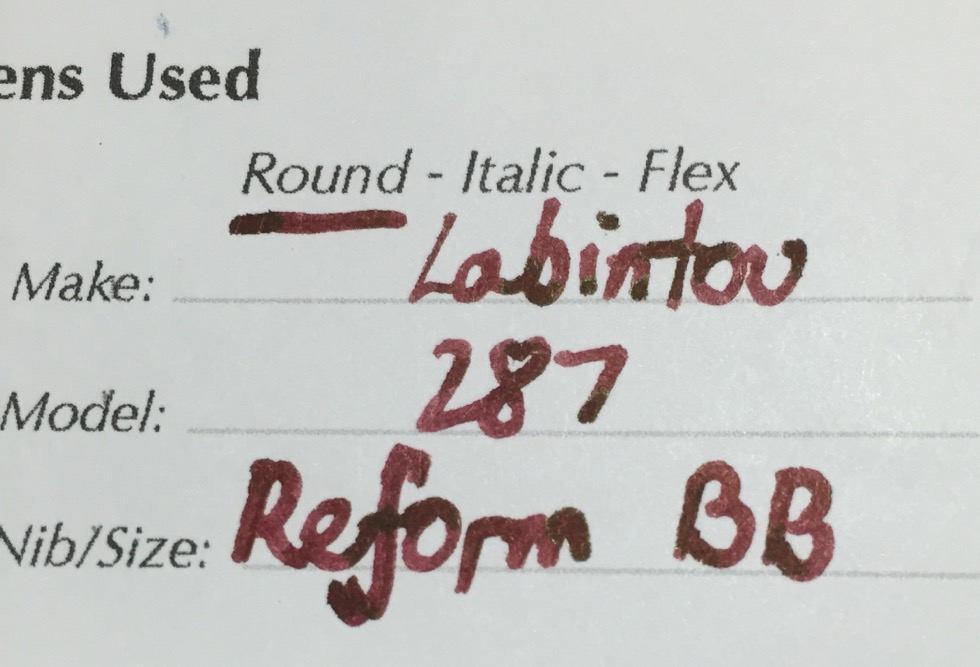 ens Used
Round - Italic - Flex
Make: Labintov
Model: 287
Nib/Size: Reform BB